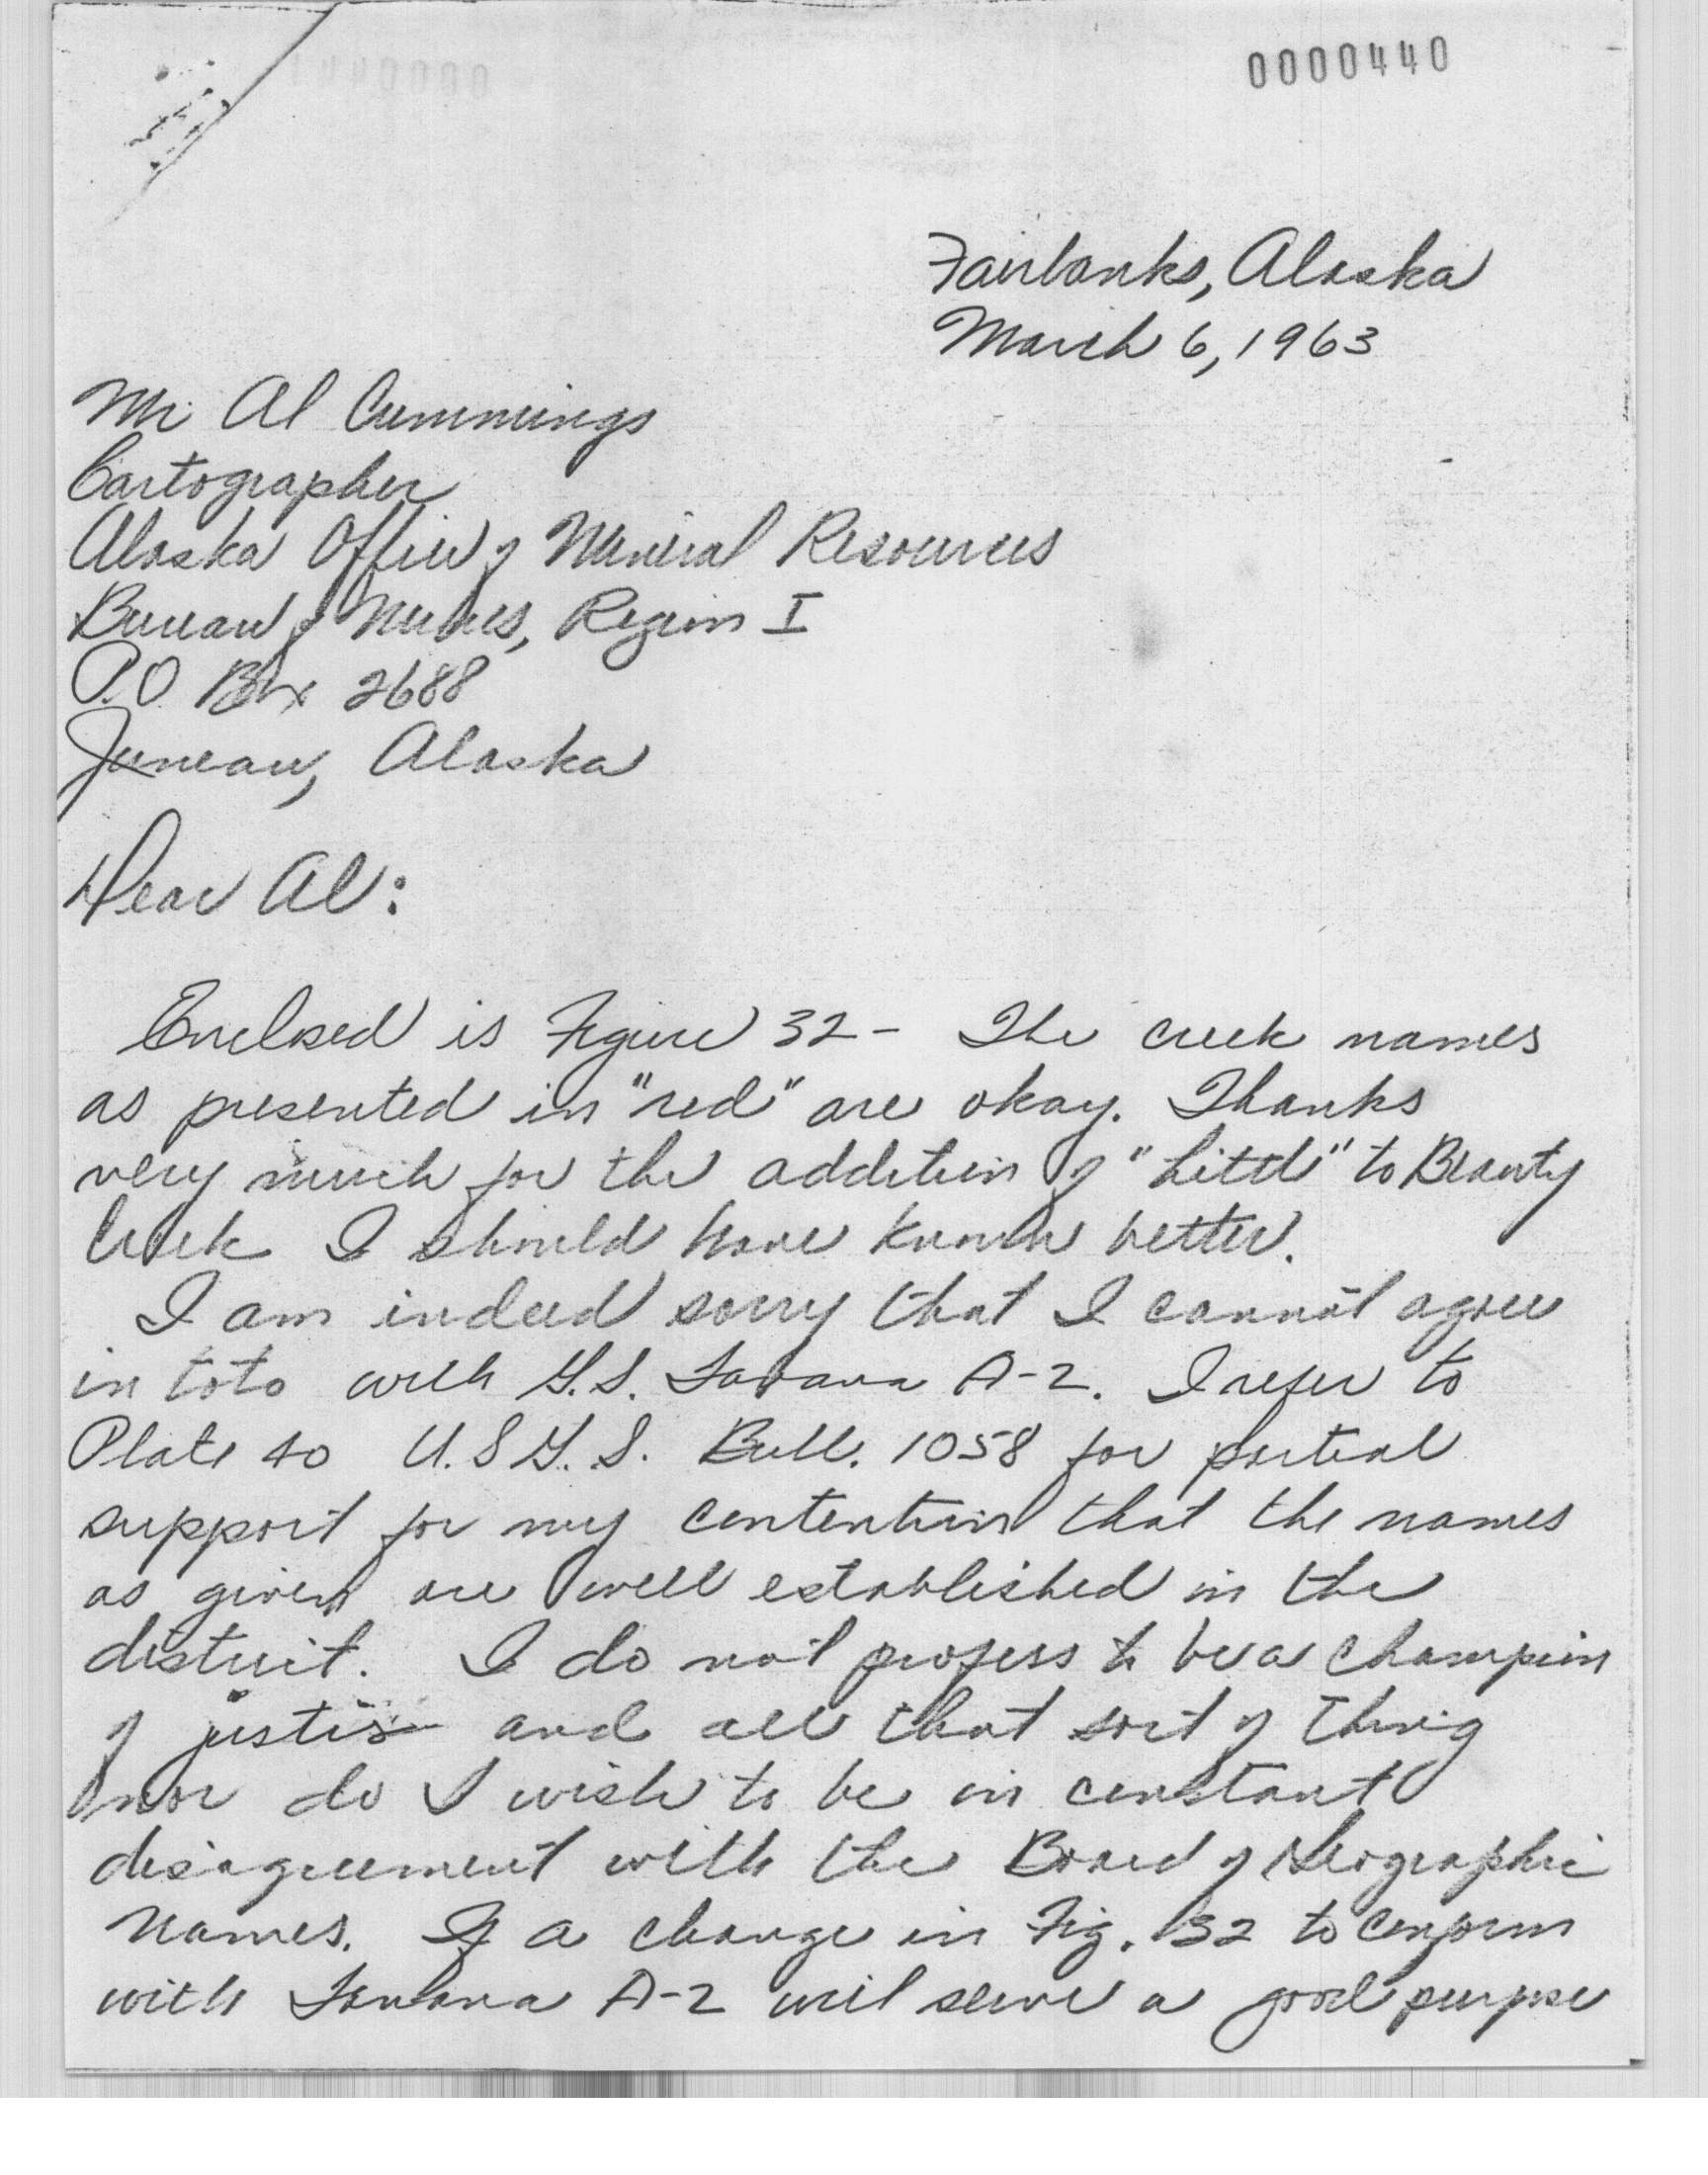 0000440
Fairbanks, Alaska
March 6, 1963
Mr Al Cummings
Cartographer
Alaska Office of Mineral Resources
Bureau of Mines, Region I
P.O. Box 2688
Juneau, Alaska
Dear Al:
Enclosed is Figure 32 - The creek names
as presented in "red" are okay. Thanks
very much for the addition of "Little" to Beauty
Creek I should have known better.
I am indeed sorry that I cannot agree
in toto with G.S. Tanana A-2. I refer to
Plate 40 U.S.G.S. Bull. 1058 for partial
support for my contention that the names
as given are well established in the
district. I do not profess to be a champion
of justice and all that sort of thing
nor do I wish to be in constant
disagreement with the Board of Geographic
Names. If a change in Fig. 32 to conform
with Tanana A-2 will serve a good purpose